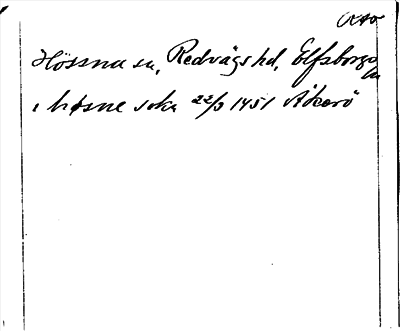 Hössna sn, Redvägs hd, Elfsborgs ln
i høsne sokn 22/3 1451 Åkerö